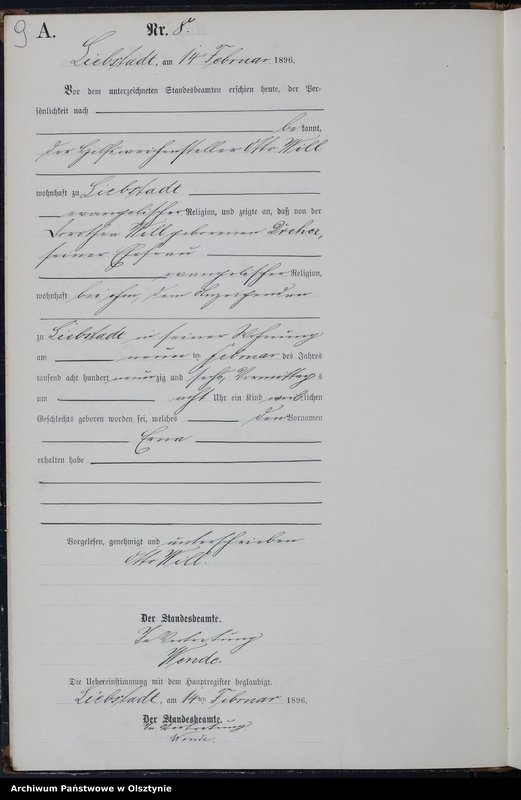 9
A.
Nr. 8.
Liebstadt, am 14ten Februar 1896.
Vor dem unterzeichneten Standesbeamten erschien heute, der Per-
sönlichkeit nach
be kannt,
der Hilfsweichensteller Otto Will
wohnhaft zu Liebstadt
evangelischer Religion, und zeigte an, daß von der
Dorothea Will geborenen Dreher,
seiner Ehefrau
evangelischer Religion,
wohnhaft bei ihm, dem Anzeigenden
zu Liebstadt in seiner Wohnung
am neun ten Februar des Jahres
tausend acht hundert neunzig und sechs Vormittags
um acht Uhr ein Kind weiblichen
Geschlechts geboren worden sei, welches den Vornamen
Erna
erhalten habe
Vorgelesen, genehmigt und unterschrieben
Otto Will.
Der Standesbeamte.
In Vertretung
Wende.
Die Uebereinstimmung mit dem Hauptregister beglaubigt.
Liebstadt, am 14ten Februar 1896.
Der Standesbeamte.
In Vertretung
Wende.
Archiwum Państwowe w Olsztynie